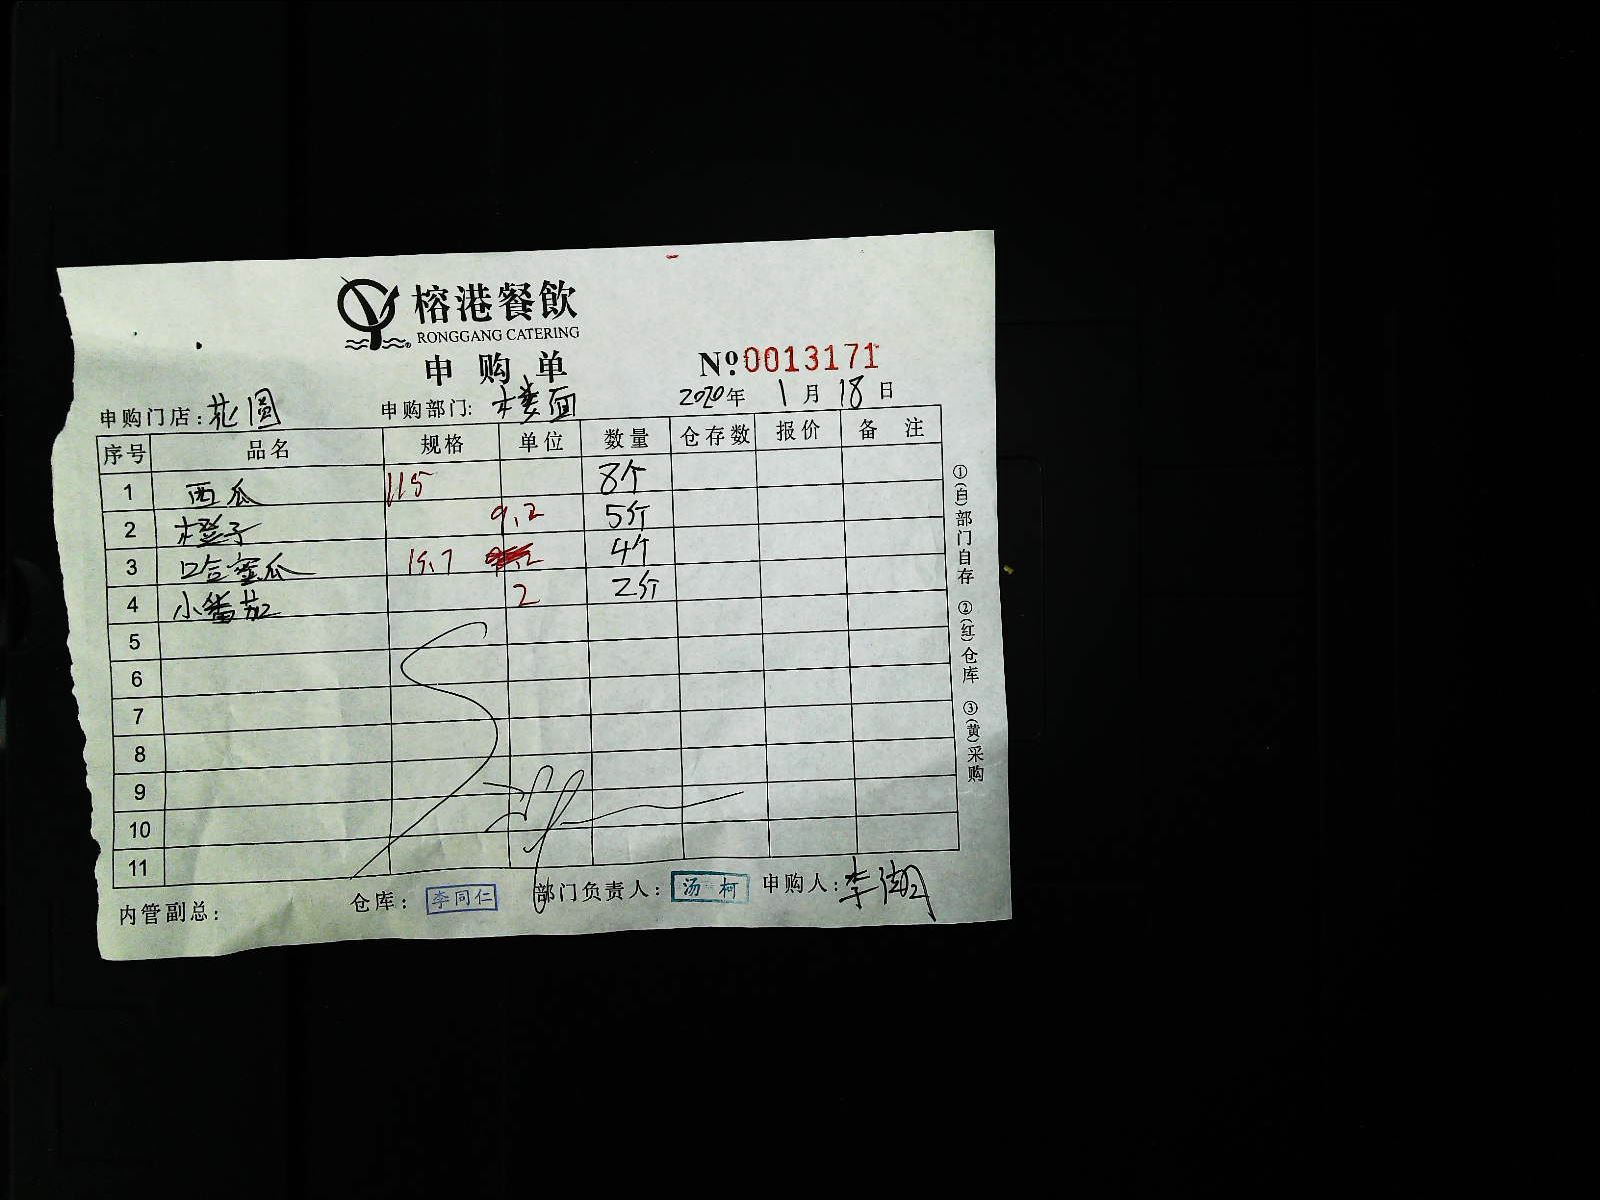 榕港餐飲
RONGGANG CATERING
申购单
Nº.0013171
申购门店:花圆 申购部门:楼面 2020年1月18日
序号 品名 规格 单位 数量 仓存数 报价 备注
1 西瓜 115 8个
2 橙子 9.2 5斤
3 哈密瓜 15.7 4个
4 小番茄 2 2斤
5
6
7
8
9
10
11
①(白)部门自存 ②(红)仓库 ③(黄)采购
内管副总: 仓库: 李同仁 部门负责人: 汤柯 申购人:李